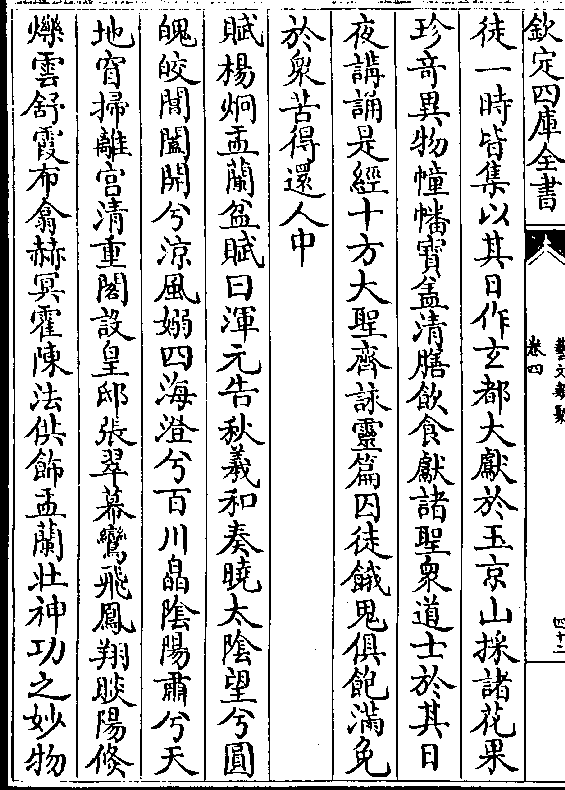 欽定四庫全書
藝文類聚
卷四
四十二
徒一時皆集以其日作玄都大獻於玉京山採諸花果
珍竒異物幢幡寳盆清膳飲食獻諸聖衆道士於其日
夜講誦是經十方大聖齊詠靈篇囚徒餓鬼俱飽滿免
於衆苦得還人中
賦楊炯盂蘭盆賦曰渾元告秋羲和奏曉太隂望兮圓
魄皎閶闔開兮涼風嫋四海澄兮百川晶隂陽肅兮天
地窅掃離宫清重閣設皇邸張翠幕鸞飛鳳翔睒陽倏
爍雲舒霞布翕赫㝠霍陳法供飾盂蘭壮神功之妙物